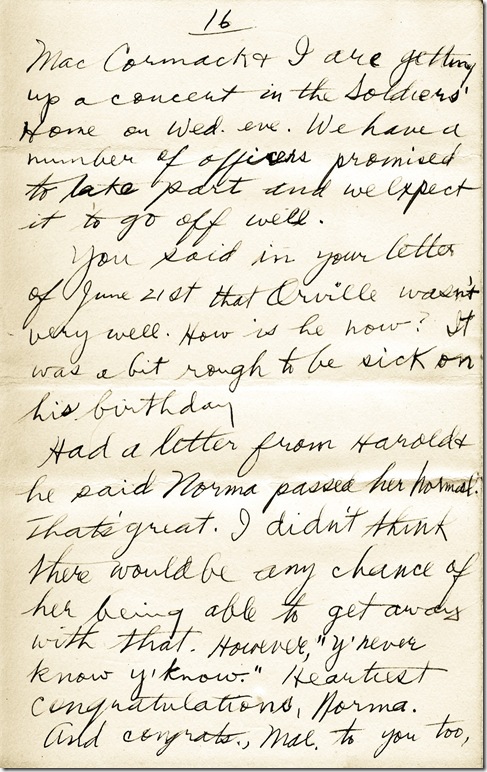 16
Mac Cormack & I are getting
up a concert in the Soldiers'
Home on Wed. eve. We have a
number of officers promised
to take part and we expect
it to go off well.
You said in your letter
of June 21st that Orville wasn't
very well. How is he now? It
was a bit rough to be sick on
his birthday
Had a letter from Harold &
he said Norma passed her Normal.
That's great. I didn't think
there would be any chance of
her being able to get away
with that. However, "Y'never
know y'know." Heartiest
congratulations, Norma.
And congrats., Mae. to you too,